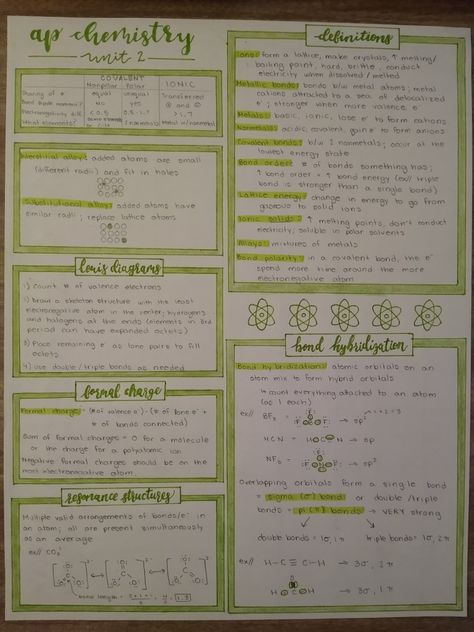 ap chemistry
unit 2
COVALENT
Nonpolar Polar IONIC
Sharing of e⁻ equal unequal Transferred
Bond dipole moment? NO YES
Electronegativity diff.
What elements? 2 nonmetals Metal w/nonmetal
Interstitial alloy: added atoms are small
(different radii) and fit in holes
Substitutional alloy: added atoms have
similar radii; replace lattice atoms
louis diagrams
1) Count # of valence electrons
2) Draw a skeleton structure with the least
electronegative atom in the center; hydrogens
and halogens at the ends (elements in 3rd
period can have expanded octets)
3) Place remaining e⁻ as lone pairs to fill
octets
4) Use double/triple bonds as needed
formal charge
Formal charge: (# of valence e⁻) - (# of lone e⁻ +
# of bonds connected)
Sum of formal charges = 0 for a molecule
or the charge for a polyatomic ion
Negative formal charges should be on the
most electronegative atom
resonance structures
Multiple valid arrangements of bonds/e⁻ in
an atom; all are present simultaneously
as an average
ex// CO₃²⁻
bond length = = 4/3 = 1.3
definitions
Ionic: form a lattice, make crystals, ↑ melting/
boiling point, hard, brittle, conduct
electricity when dissolved/melted
Metallic bonds: bonds b/w metal atoms; metal
cations attracted to a sea of delocalized
e⁻; stronger when more valence e⁻
Metals: basic, ionic, lose e⁻ to form cations
Nonmetals: acidic, covalent, gain e⁻ to form anions
Covalent bonds: b/w 2 nonmetals; occur at the
lowest energy state
Bond order: # of bonds something has;
↑ bond order = ↑ bond energy (ex// triple
bond is stronger than a single bond)
Lattice energy: change in energy to go from
gaseous to solid ions
Ionic solids: ↑ melting points, don't conduct
electricity, soluble in polar solvents
Alloys: mixtures of metals
Bond polarity: in a covalent bond, the e⁻
spend more time around the more
electronegative atom
bond hybridization
Bond hybridization: atomic orbitals on an
atom mix to form hybrid orbitals
↳ count everything attached to an atom
(as 1 each)
ex// BF₃ = → sp²
HCN = → sp
NF₃ = → sp³
Overlapping orbitals form a single bond
= sigma (σ) bond or double/triple
bonds = pi (π) bonds → VERY strong
double bonds = 1σ, 1π triple bonds = 1σ, 2π
ex// H-C≡C-H → 3σ, 2π
→ 3σ, 1π